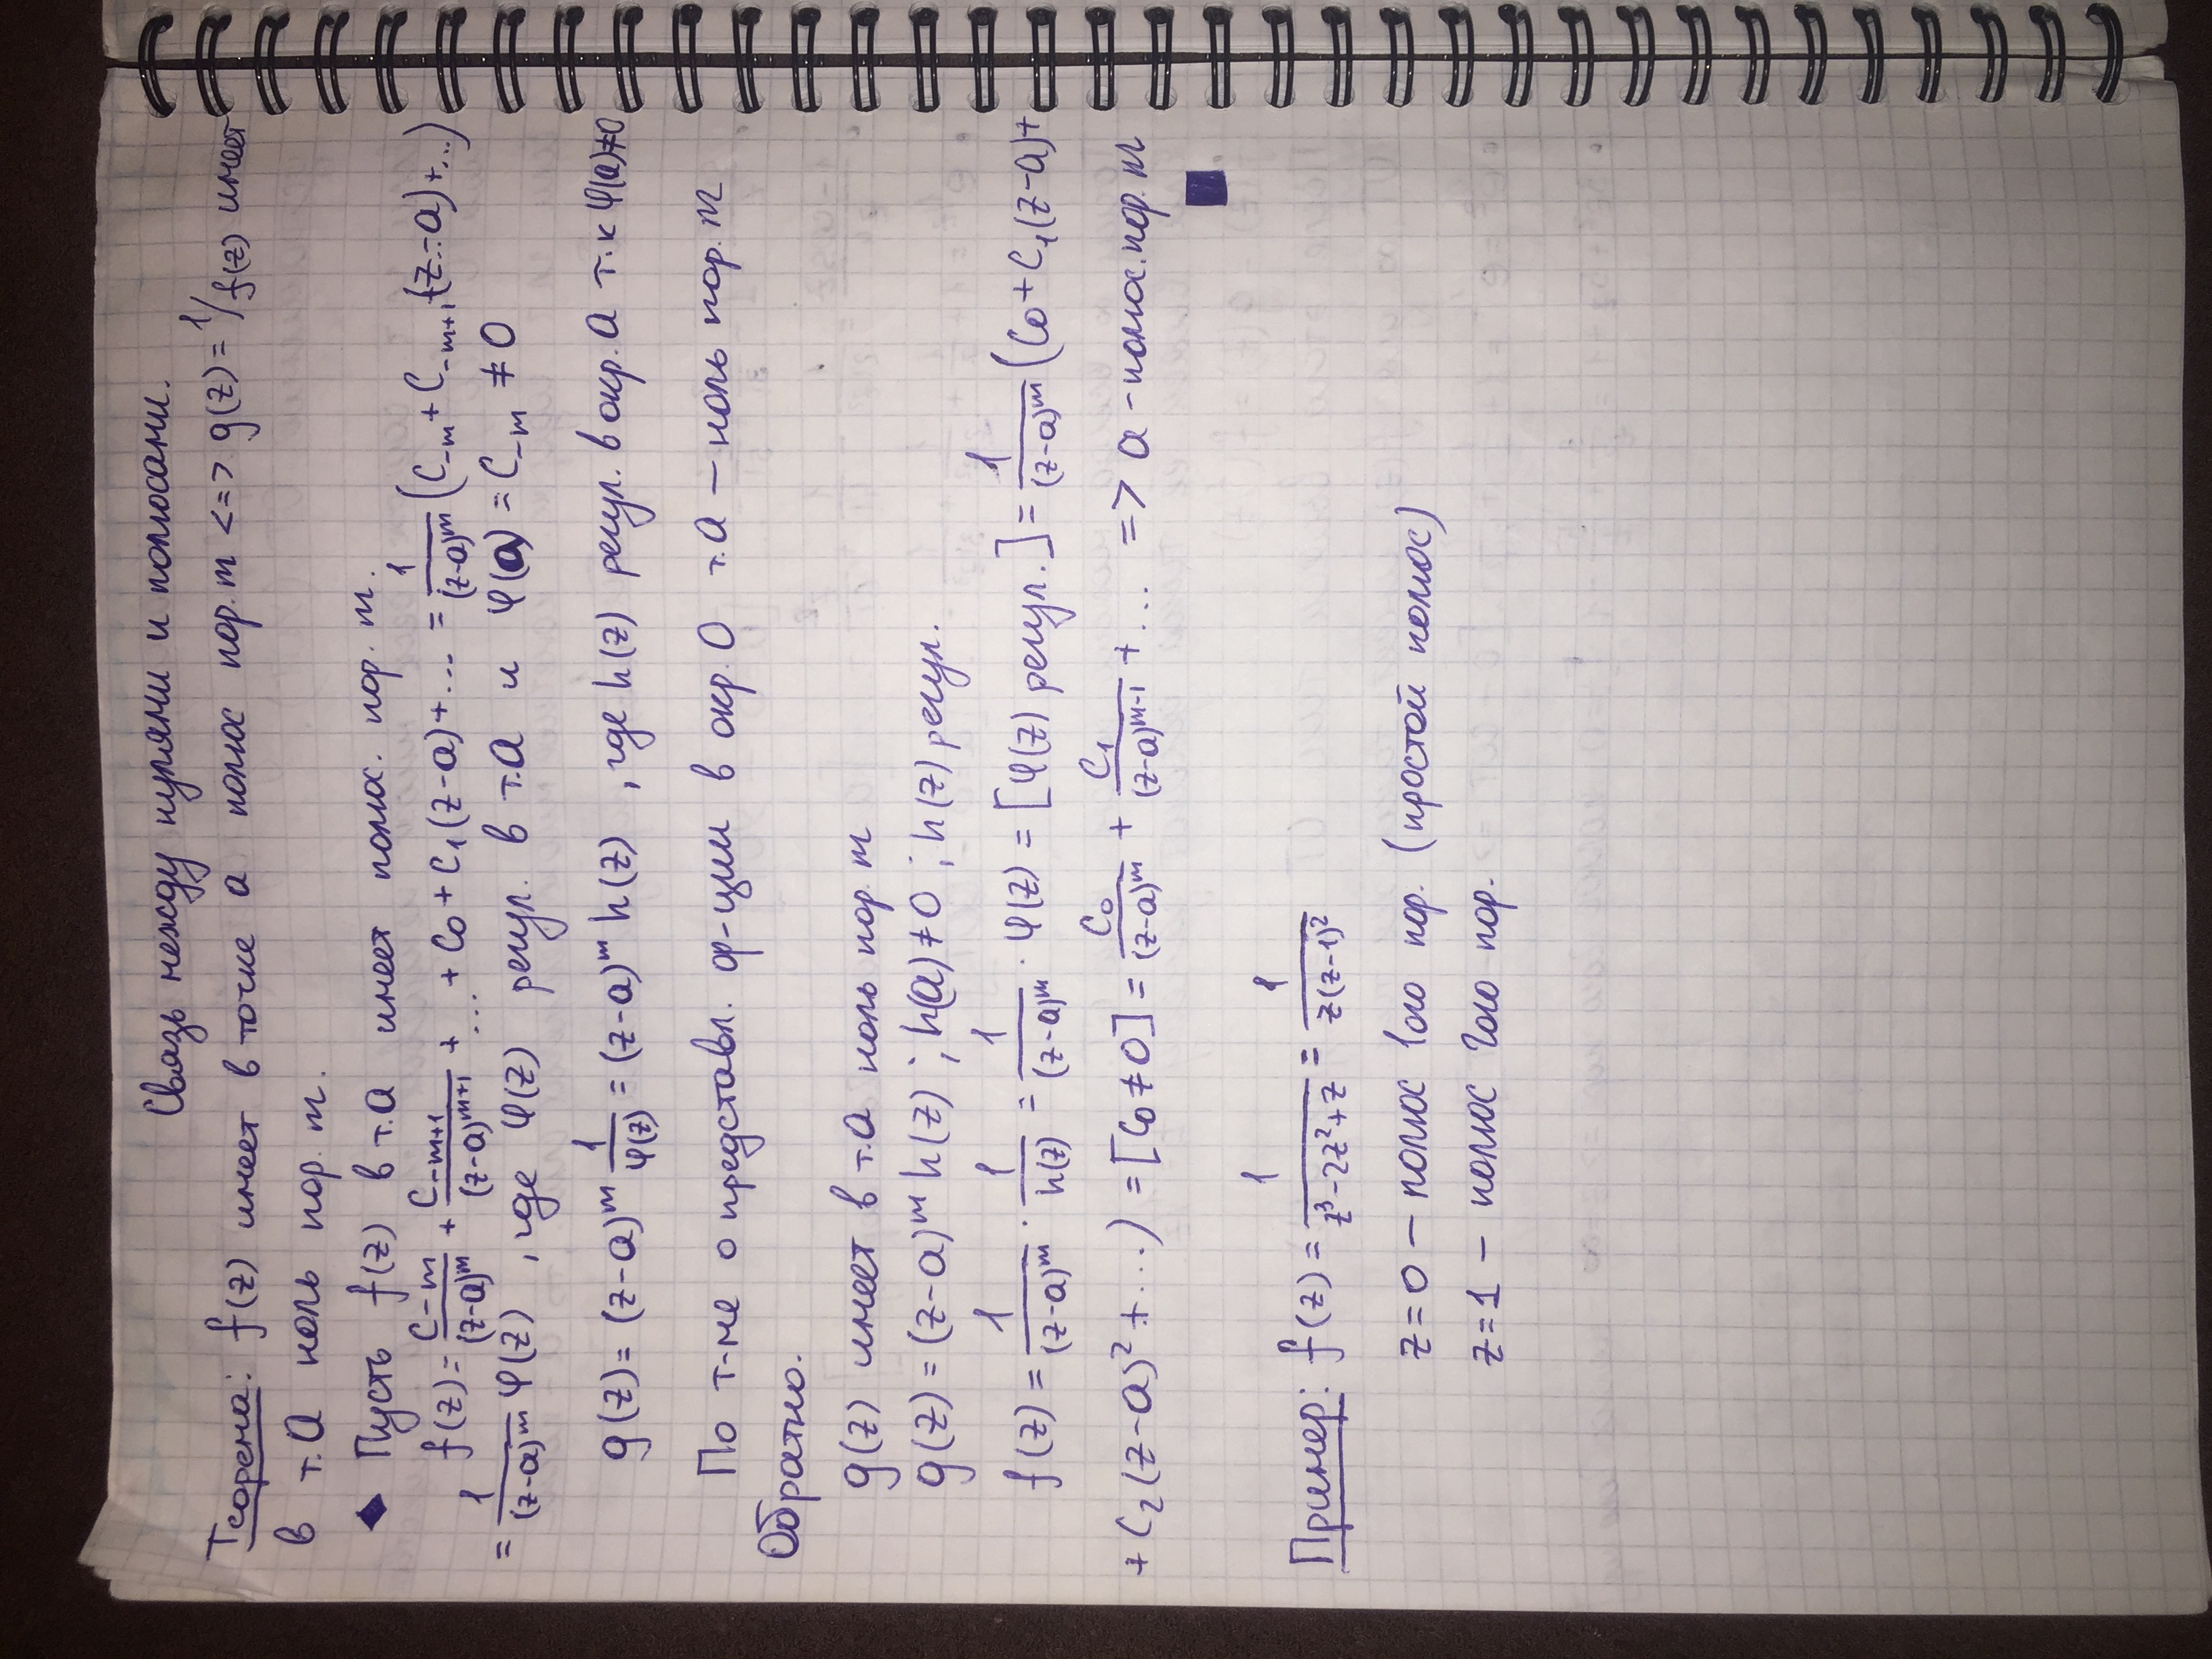 Связь между нулями и полюсами.
Теорема: f(z) имеет в точке a полюс пор. m <=> g(z) = 1/f(z) имеет
в т. a ноль пор. m.
◆ Пусть f(z) в т. a имеет полюс. пор. m.
f(z) = C_{-m}/(z-a)^m + C_{-m+1}/(z-a)^{m+1} + ... + C_0 + C_1(z-a) + ... = 1/(z-a)^m (C_{-m} + C_{-m+1}(z-a) + ...)
= 1/(z-a)^m φ(z) , где φ(z) регул. в т. a и φ(a) = C_{-m} ≠ 0
g(z) = (z-a)^m 1/φ(z) = (z-a)^m h(z) , где h(z) регул. в окр. a т.к φ(a)≠0
По т-ме о представл. ф-ции в окр. 0 т. a – ноль пор. m
Обратно.
g(z) имеет в т. a ноль пор. m
g(z) = (z-a)^m h(z) ; h(a) ≠ 0 ; h(z) регул.
f(z) = 1/(z-a)^m · 1/h(z) = 1/(z-a)^m · φ(z) = [φ(z) регул.] = 1/(z-a)^m (C_0 + C_1(z-a) +
+ C_2(z-a)^2 + ...) = [C_0 ≠ 0] = C_0/(z-a)^m + C_1/(z-a)^{m-1} + ... => a – полюс. пор. m
■
Пример: f(z) = 1/(z^3 - 2z^2 + z) = 1/(z(z-1)^2)
z = 0 – полюс 1ого пор. (простой полюс)
z = 1 – полюс 2ого пор.